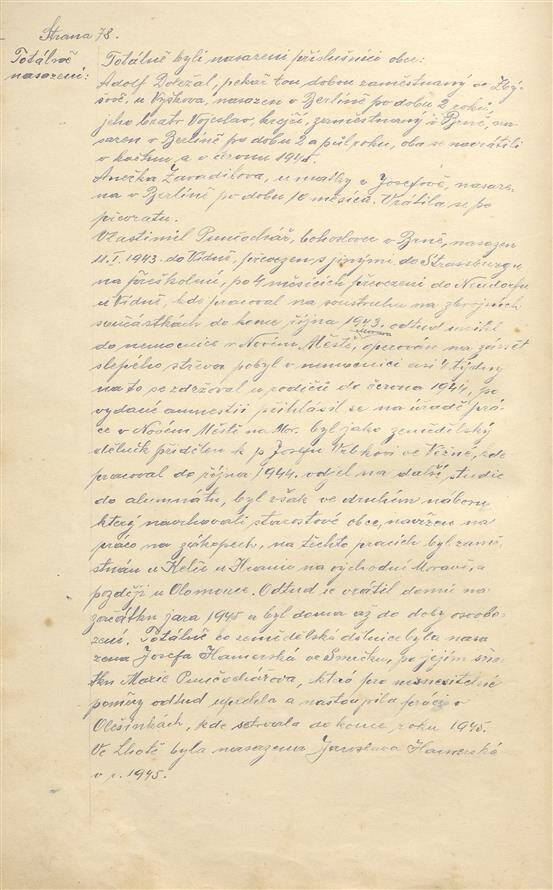 Strana 78.
Totálně
nasazení:
Totálně byli nasazeni příslušníci obce:
Adolf Doležal, pekař tou dobou zaměstnaný ve
u Vyškova, nasazen v Berlíně po dobu 2 roků,
jeho bratr Vojeslav, krejčí, zaměstnaný v Brně, na-
sazen v Berlíně po dobu 2 a půl roku, oba se navrátili
v květnu a v červnu 1945.
Anežka Zavadilova, u matky v Josefově, nasaze-
na v Berlíně po dobu 10 měsíců. Vrátila se po
převratu.
Vlastimil Punčochář, bohoslovec v Brně, nasazen
11.I. 1943. do Vídně, převezen s jinými do Strassburgu
na přeškolení, po 4 měsících převezeni do Neudorfu
u Vídně, kde pracoval na soustruhu na zbrojních
součástkách do konce října 1943. odtud
do nemocnice v Novém Městě, operován na zánět
slepého střeva pobyl v nemocnici asi 4 týdny
na to se zdržoval u rodičů do června 1944, po
vydané amnestii přihlásil se na úřadě prá-
ce v Novém Městě na Mor. byl jako zemědělský
dělník přidělen k p. Josefu Vrbkovi ve Věžné, kde
pracoval do října 1944. odjel na další studie
do alumnátu, byl však ve druhém náboru
který navrhovali starostové obce, navržen na
práce na zákopech, na těchto pracích byl zamě-
stnán u Kelče u Hranic na východní Moravě, a
později u Olomouce. Odtud se vrátil domů na
začátku jara 1945 a byl doma až do doby osvobo-
zení. Totálně co zemědělská dělnice byla nasa
zena Josefa Hamerská ve Smrčku, po jejím sňa-
tku Marie Punčochářova, která pro nesnesitelné
poměry odtud ujedela a nastoupila práce v
Olešinkách, kde setrvala do konce roku 1945.
Ve Lhotě byla nasazena Jaroslava Hamerská
v r. 1945.